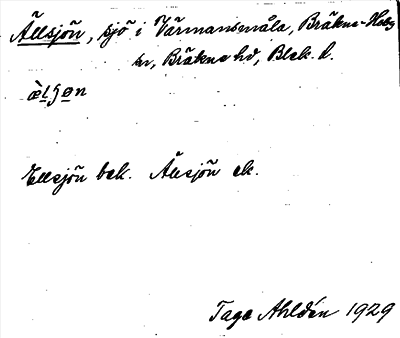 Ällsjön, sjö i Värmansmåla, Bräkne-Hoby
sn, Bräkne hd, Blek. l.
Ellsjön bek. Ällsjön ek.
Tage Ahldén 1929